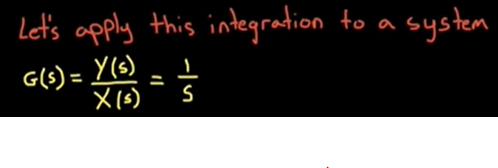 Let's apply this integration to a system
G(s) = Y(s) / X(s) = 1 / s